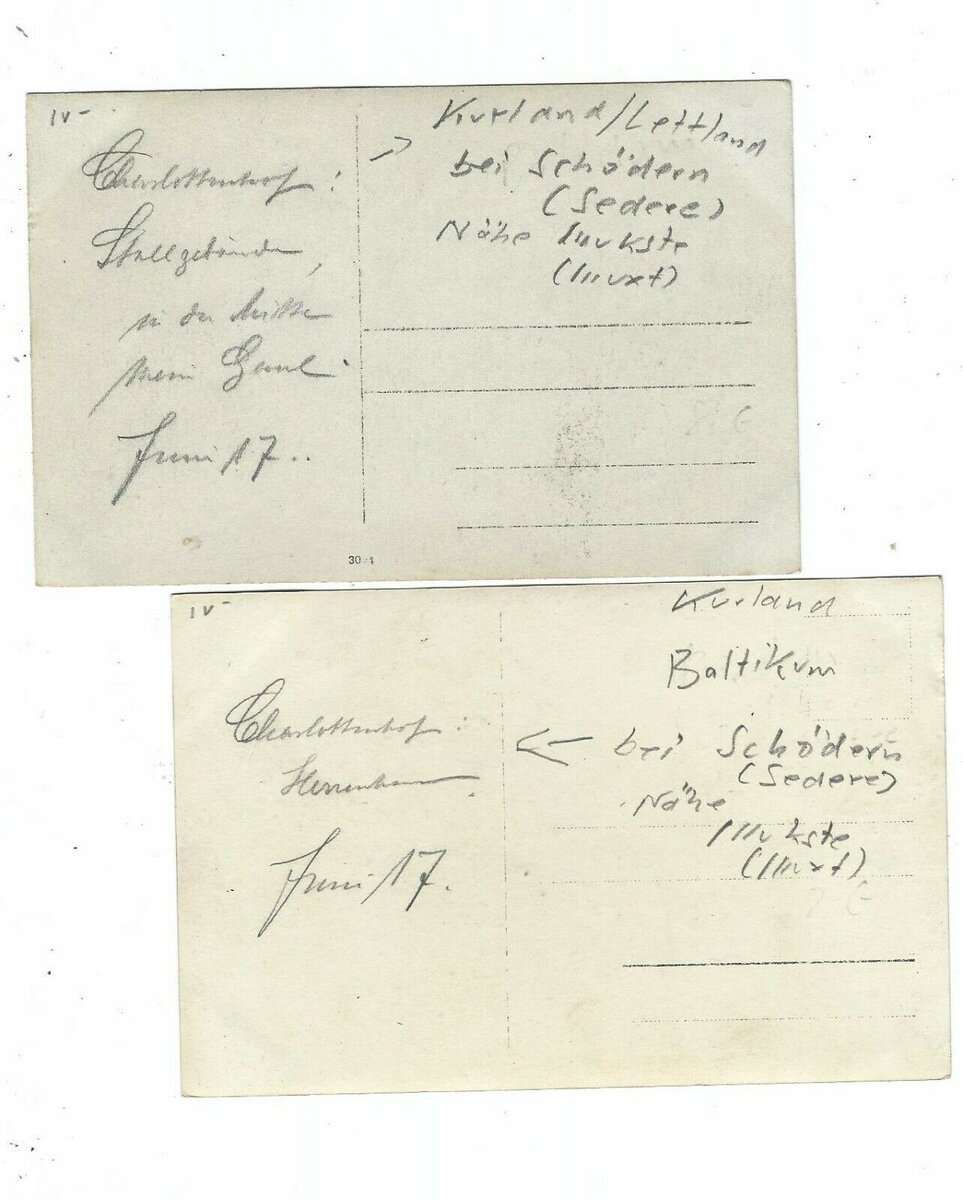 IV-
Charlottenhof:
Stallgebäude,
in der Mitte
mein Gaul.
Juni 17..
Kurland/Lettland
bei Schödern
(Sedere)
Nähe Illukste
(Illuxt)
30 1
IV-
Charlottenhof:
Herrenhaus
Juni 17.
Kurland
Baltikum
bei Schödern
(Sedere)
Nähe
Illukste
(Illuxt)